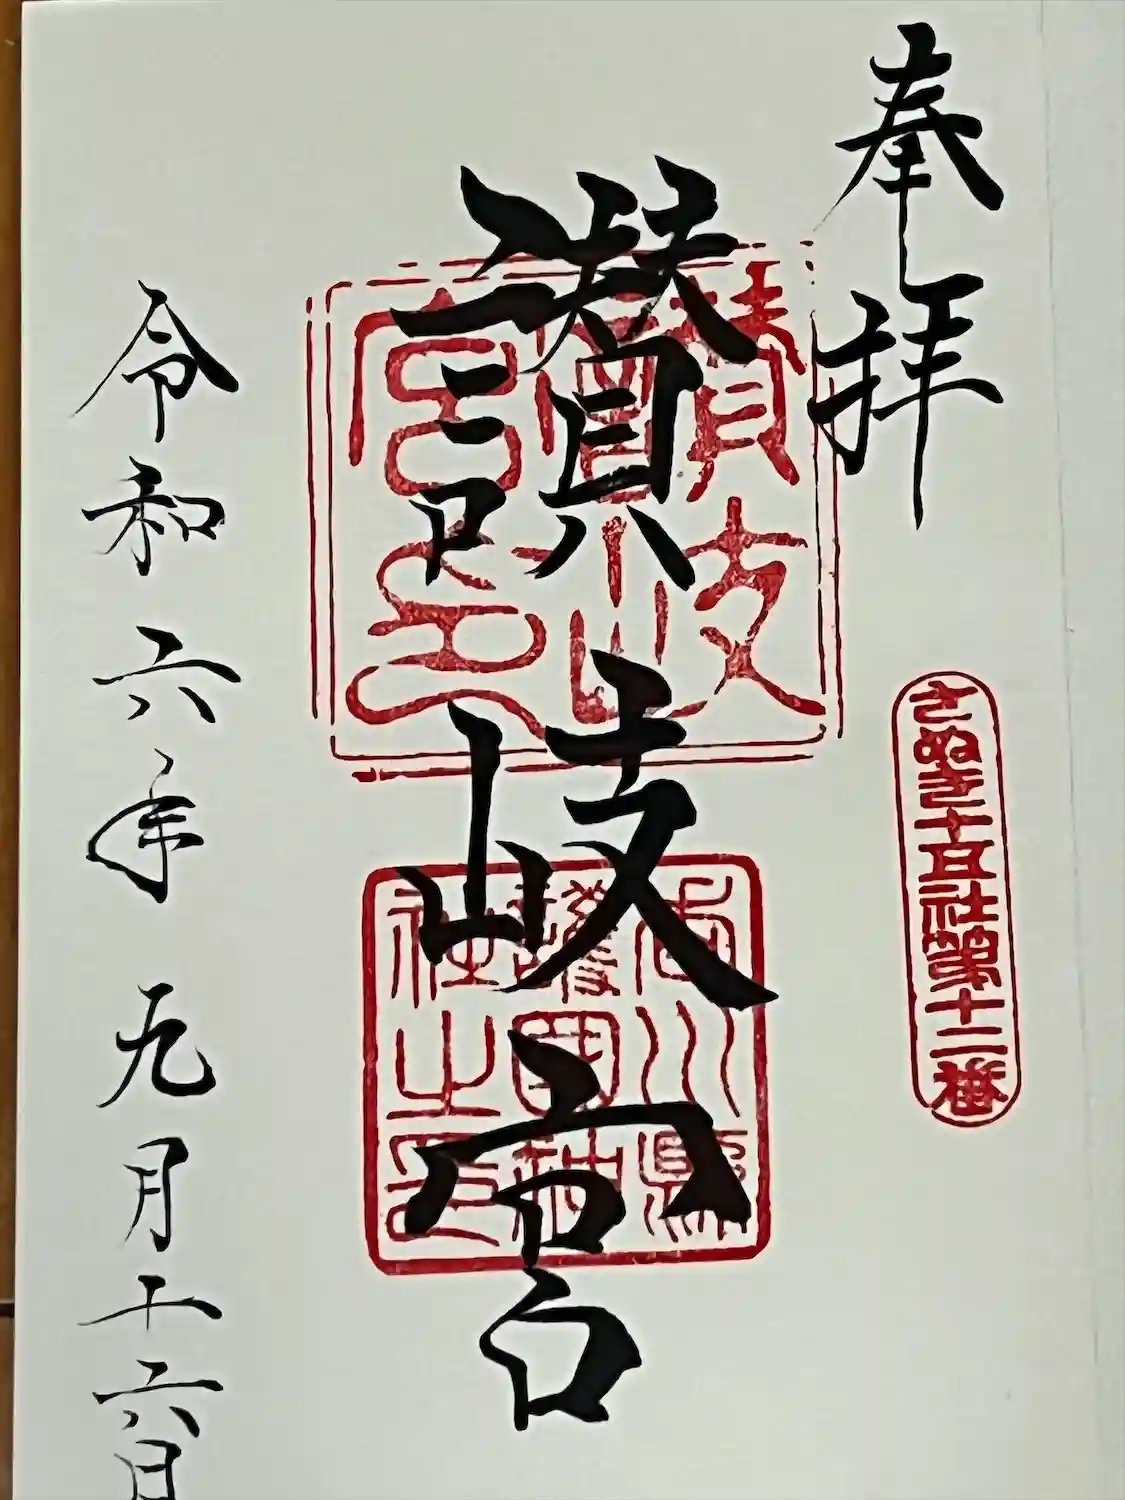 奉拝
さぬき十五社第十二番
讃岐宮
讃岐
宮印
香川縣
護國神
社之印
令和六年九月十六日